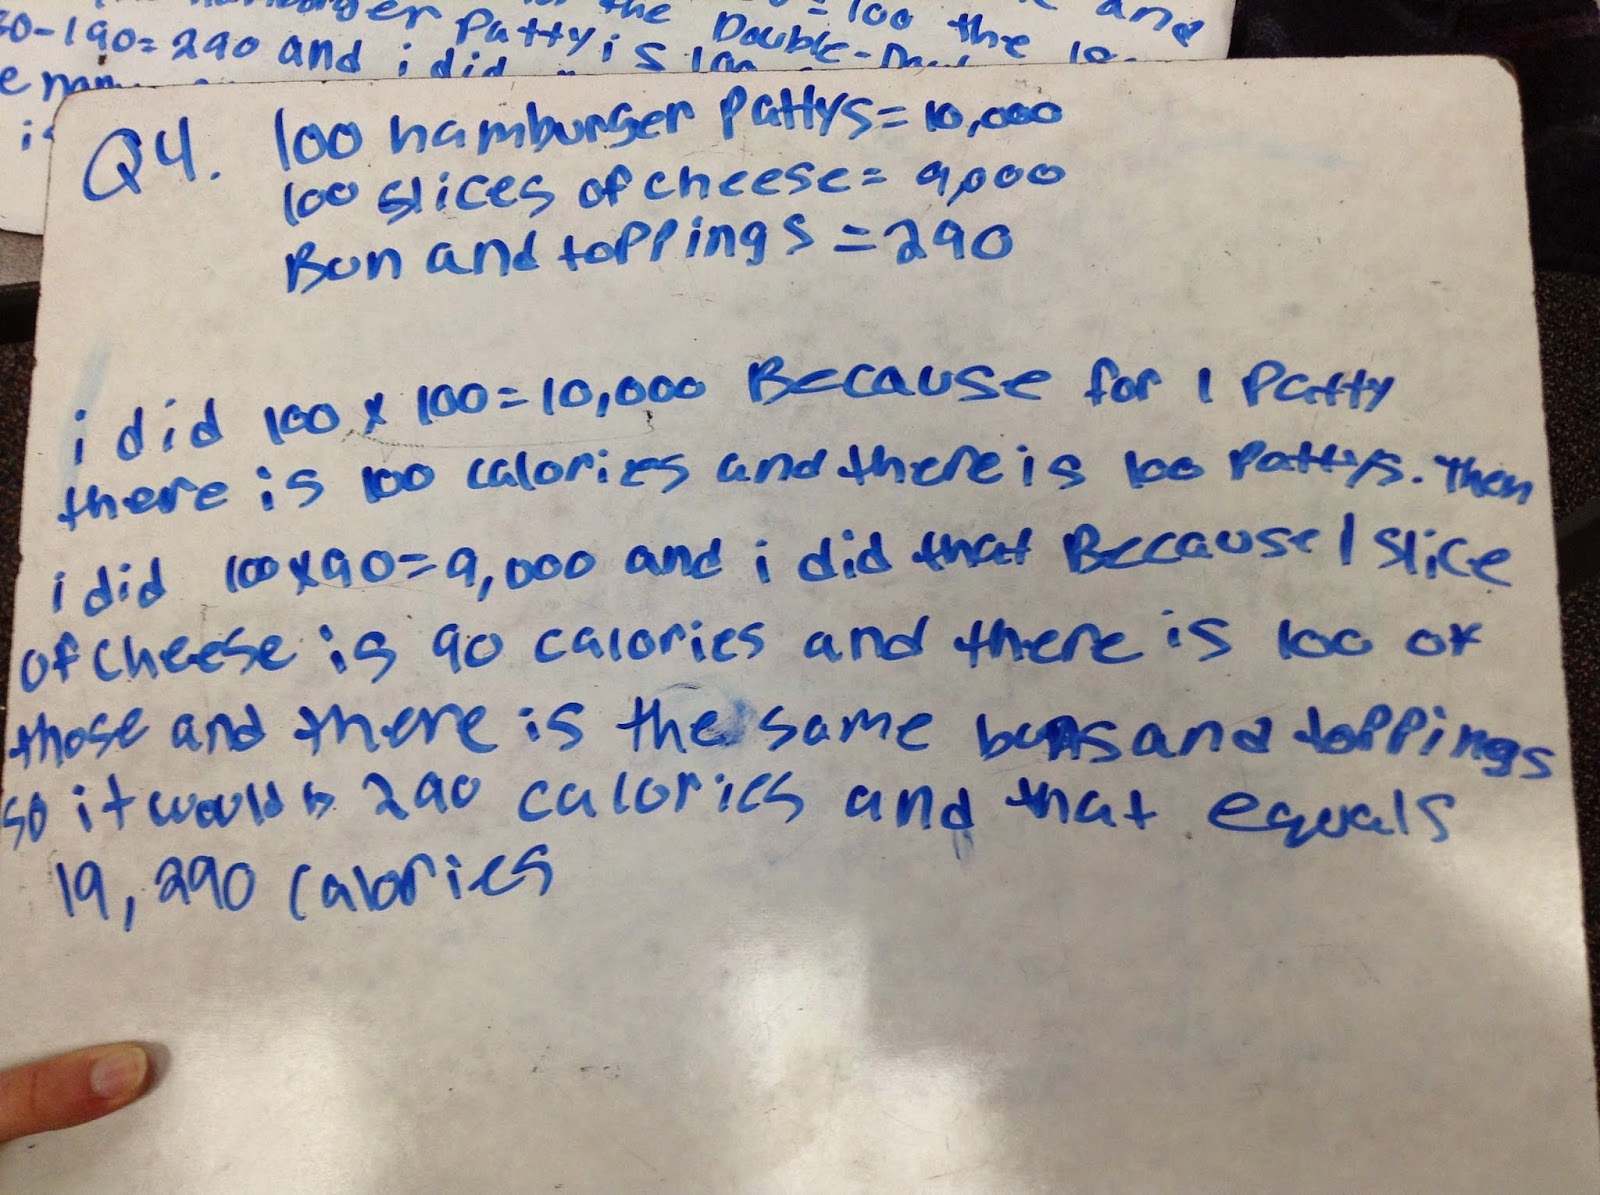 hamburger the = 100 and
0-190=290 and i did Patty is Double- the
Q4. 100 hamburger Pattys= 10,000
100 slices of cheese= 9,000
Bun and toppings = 290
i did 100 x 100=10,000 Because for 1 Patty
there is 100 calories and there is 100 Pattys. Then
i did 100x90=9,000 and i did that Because 1 slice
of cheese is 90 calories and there is 100 of
those and there is the same buns and toppings
so it would b 290 calories and that equals
19,290 calories